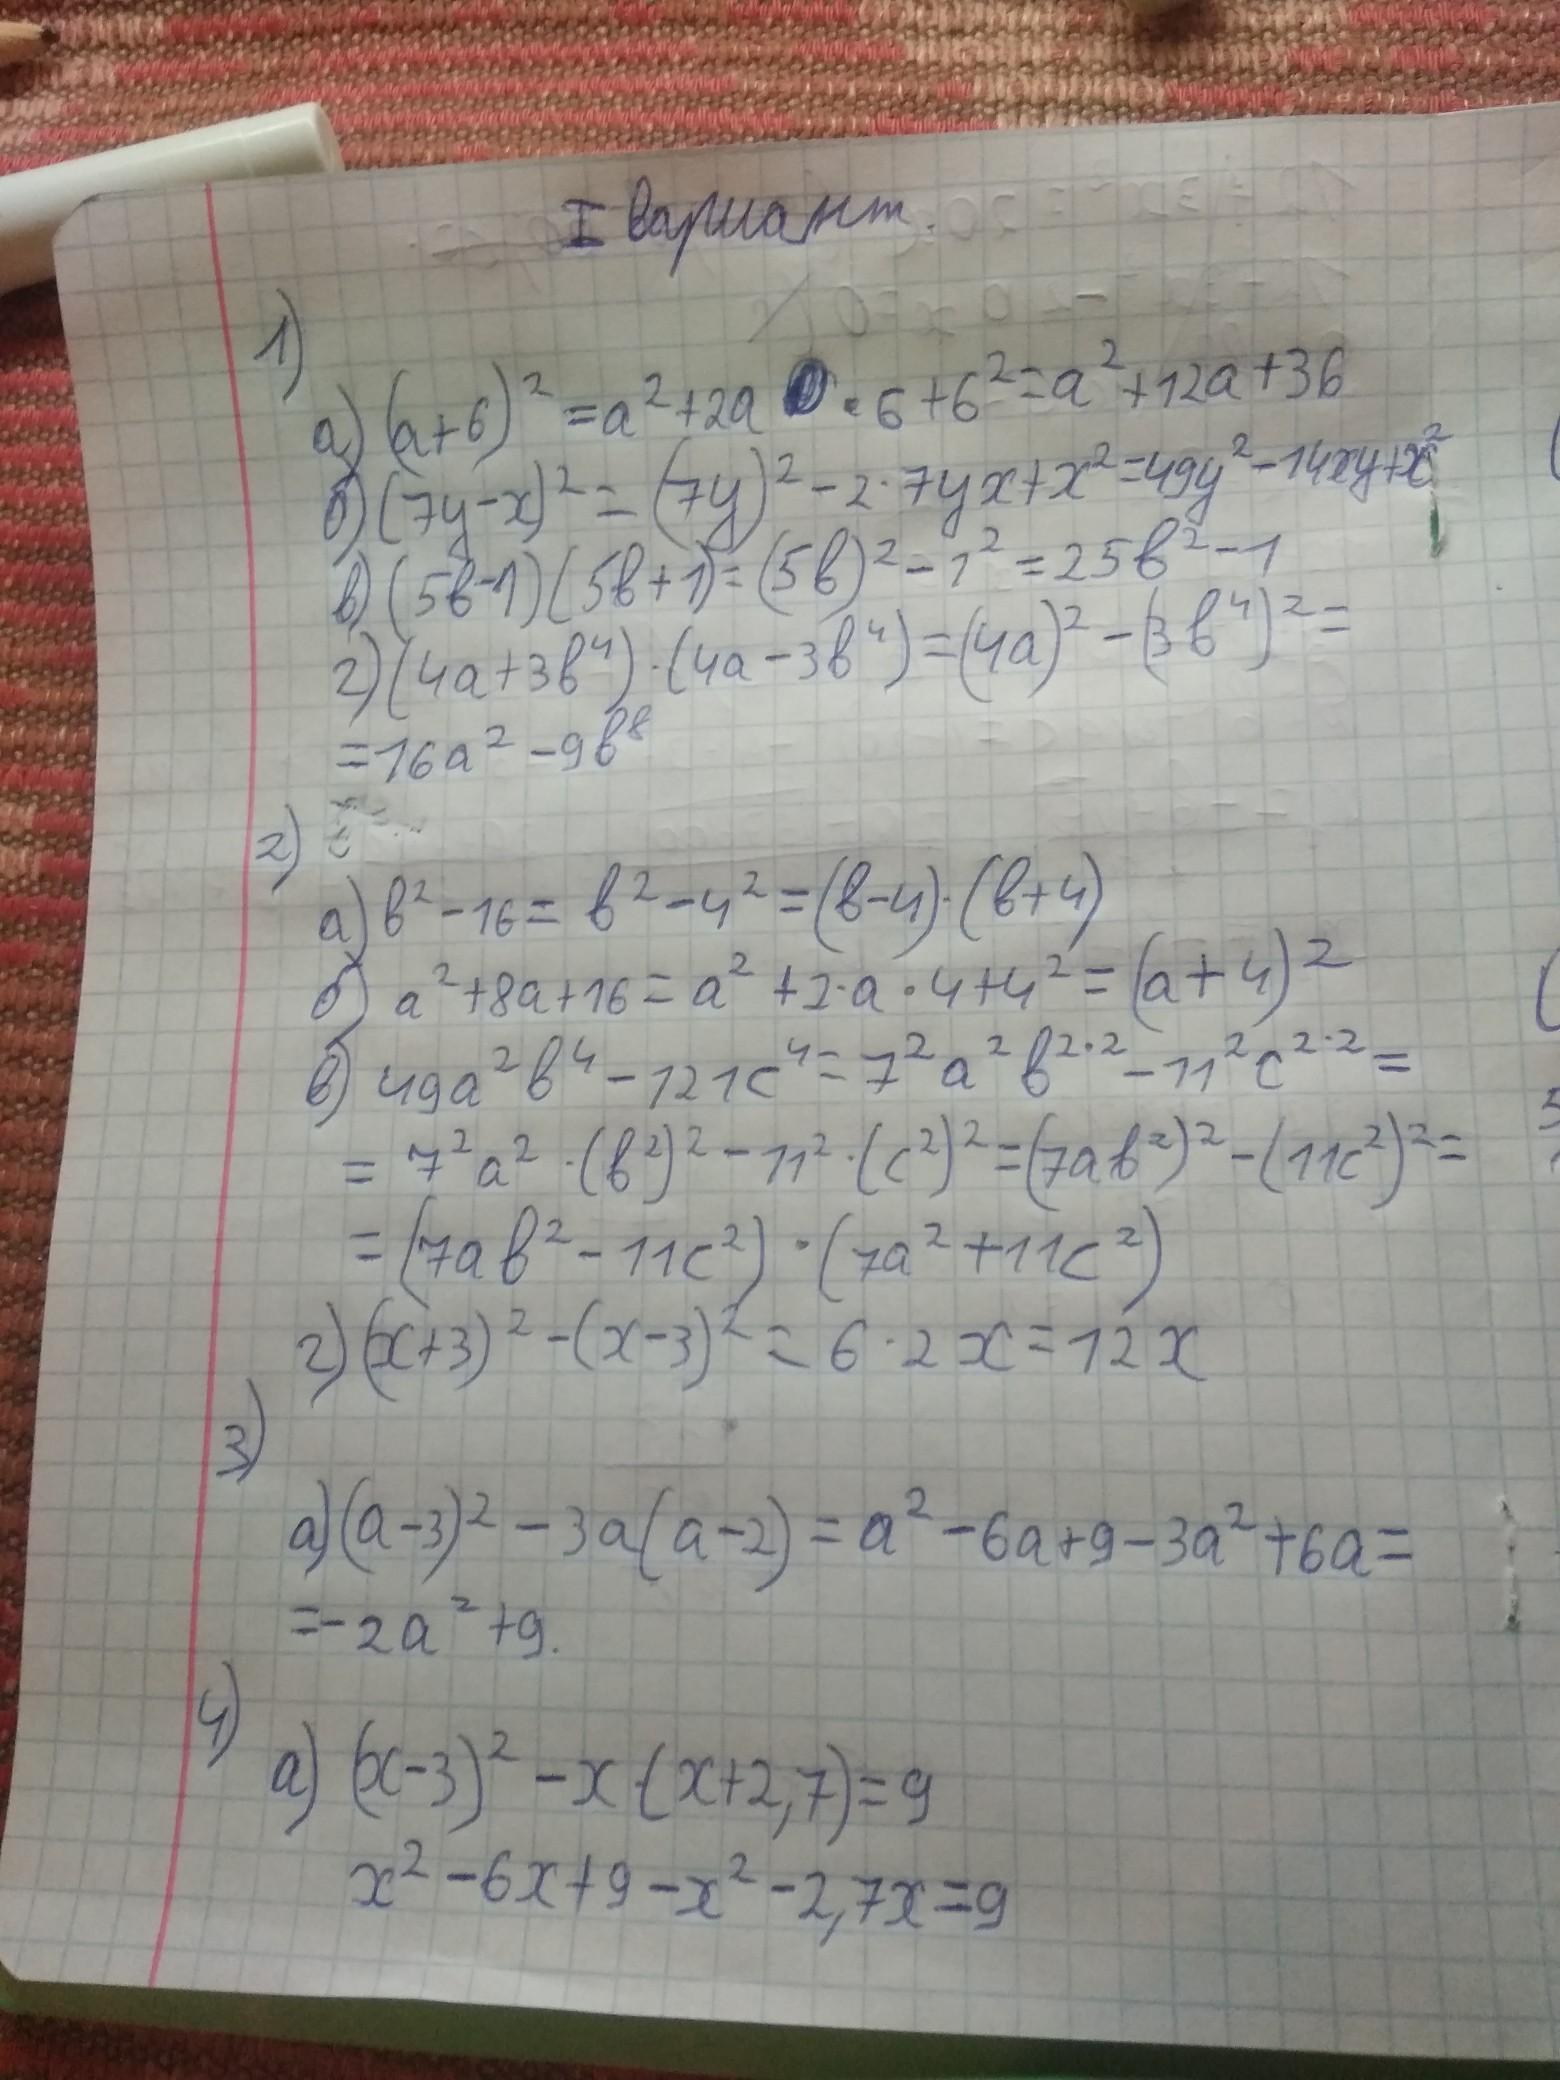 I вариант.
1)
а) (a+6)² = a²+2a · 6+6² = a²+12a+36
б) (7y-x)² = (7y)² - 2·7yx+x² = 49y² - 14xy+x²
в) (5b-1)(5b+1) = (5b)² - 1² = 25b² - 1
г) (4a+3b⁴)·(4a-3b⁴) = (4a)² - (3b⁴)² =
= 16a² - 9b⁸
2)
а) b² - 16 = b² - 4² = (b-4)·(b+4)
б) a²+8a+16 = a² + 2·a·4+4² = (a+4)²
в) 49a²b⁴ - 121c⁴ = 7²a²b²˙² - 11²c²˙² =
= 7²a² ·(b²)² - 11²·(c²)² = (7ab²)² - (11c²)² =
= (7ab² - 11c²) · (7a² + 11c²)
г) (x+3)² - (x-3)² = 6·2x = 12x
3)
а) (a-3)² - 3a(a-2) = a² - 6a+9 - 3a² + 6a =
= -2a² + 9.
4)
а) (x-3)² - x·(x+2,7) = 9
x² - 6x+9 - x² - 2,7x = 9